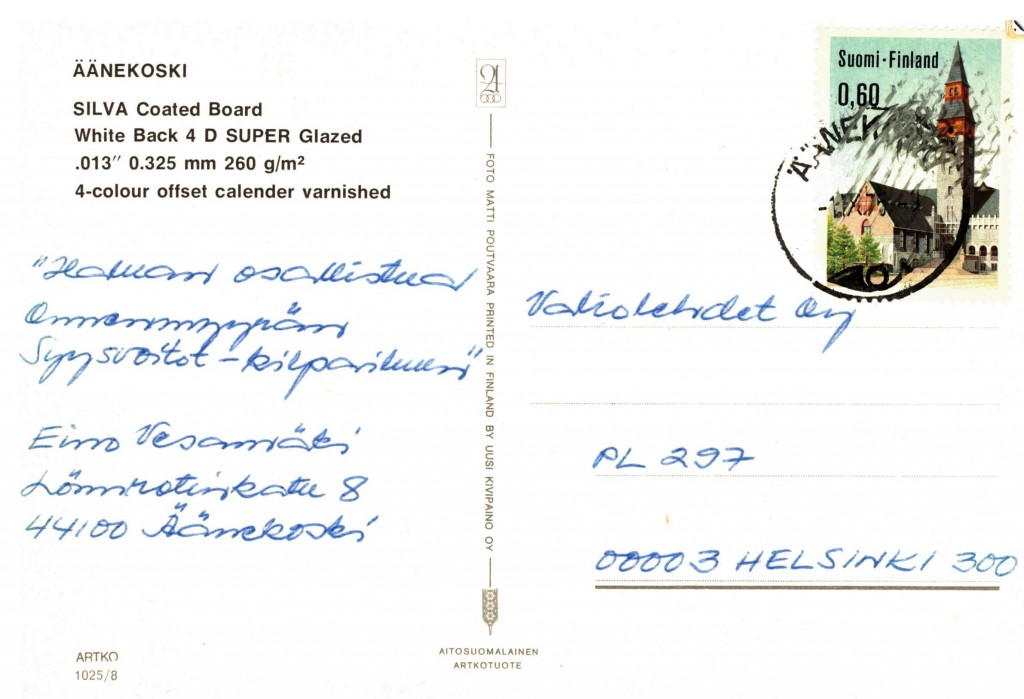 ÄÄNEKOSKI
SILVA Coated Board
White Back 4 D SUPER Glazed
.013″ 0.325 mm 260 g/m²
4-colour offset calender varnished
"Haluan osallistua
Omenmyyrän
Syysvoitot-kilpailuun"
Eino Vesamäki
Lönnrotinkatu 8
44100 Äänekoski
ARTKO
1025/8
FOTO MATTI POUTVAARA PRINTED IN FINLAND BY UUSI KIVIPAINO OY
AITOSUOMALAINEN
ARTKOTUOTE
Suomi·Finland
0,60
Valiolehdet Oy
PL 297
00003 HELSINKI 300